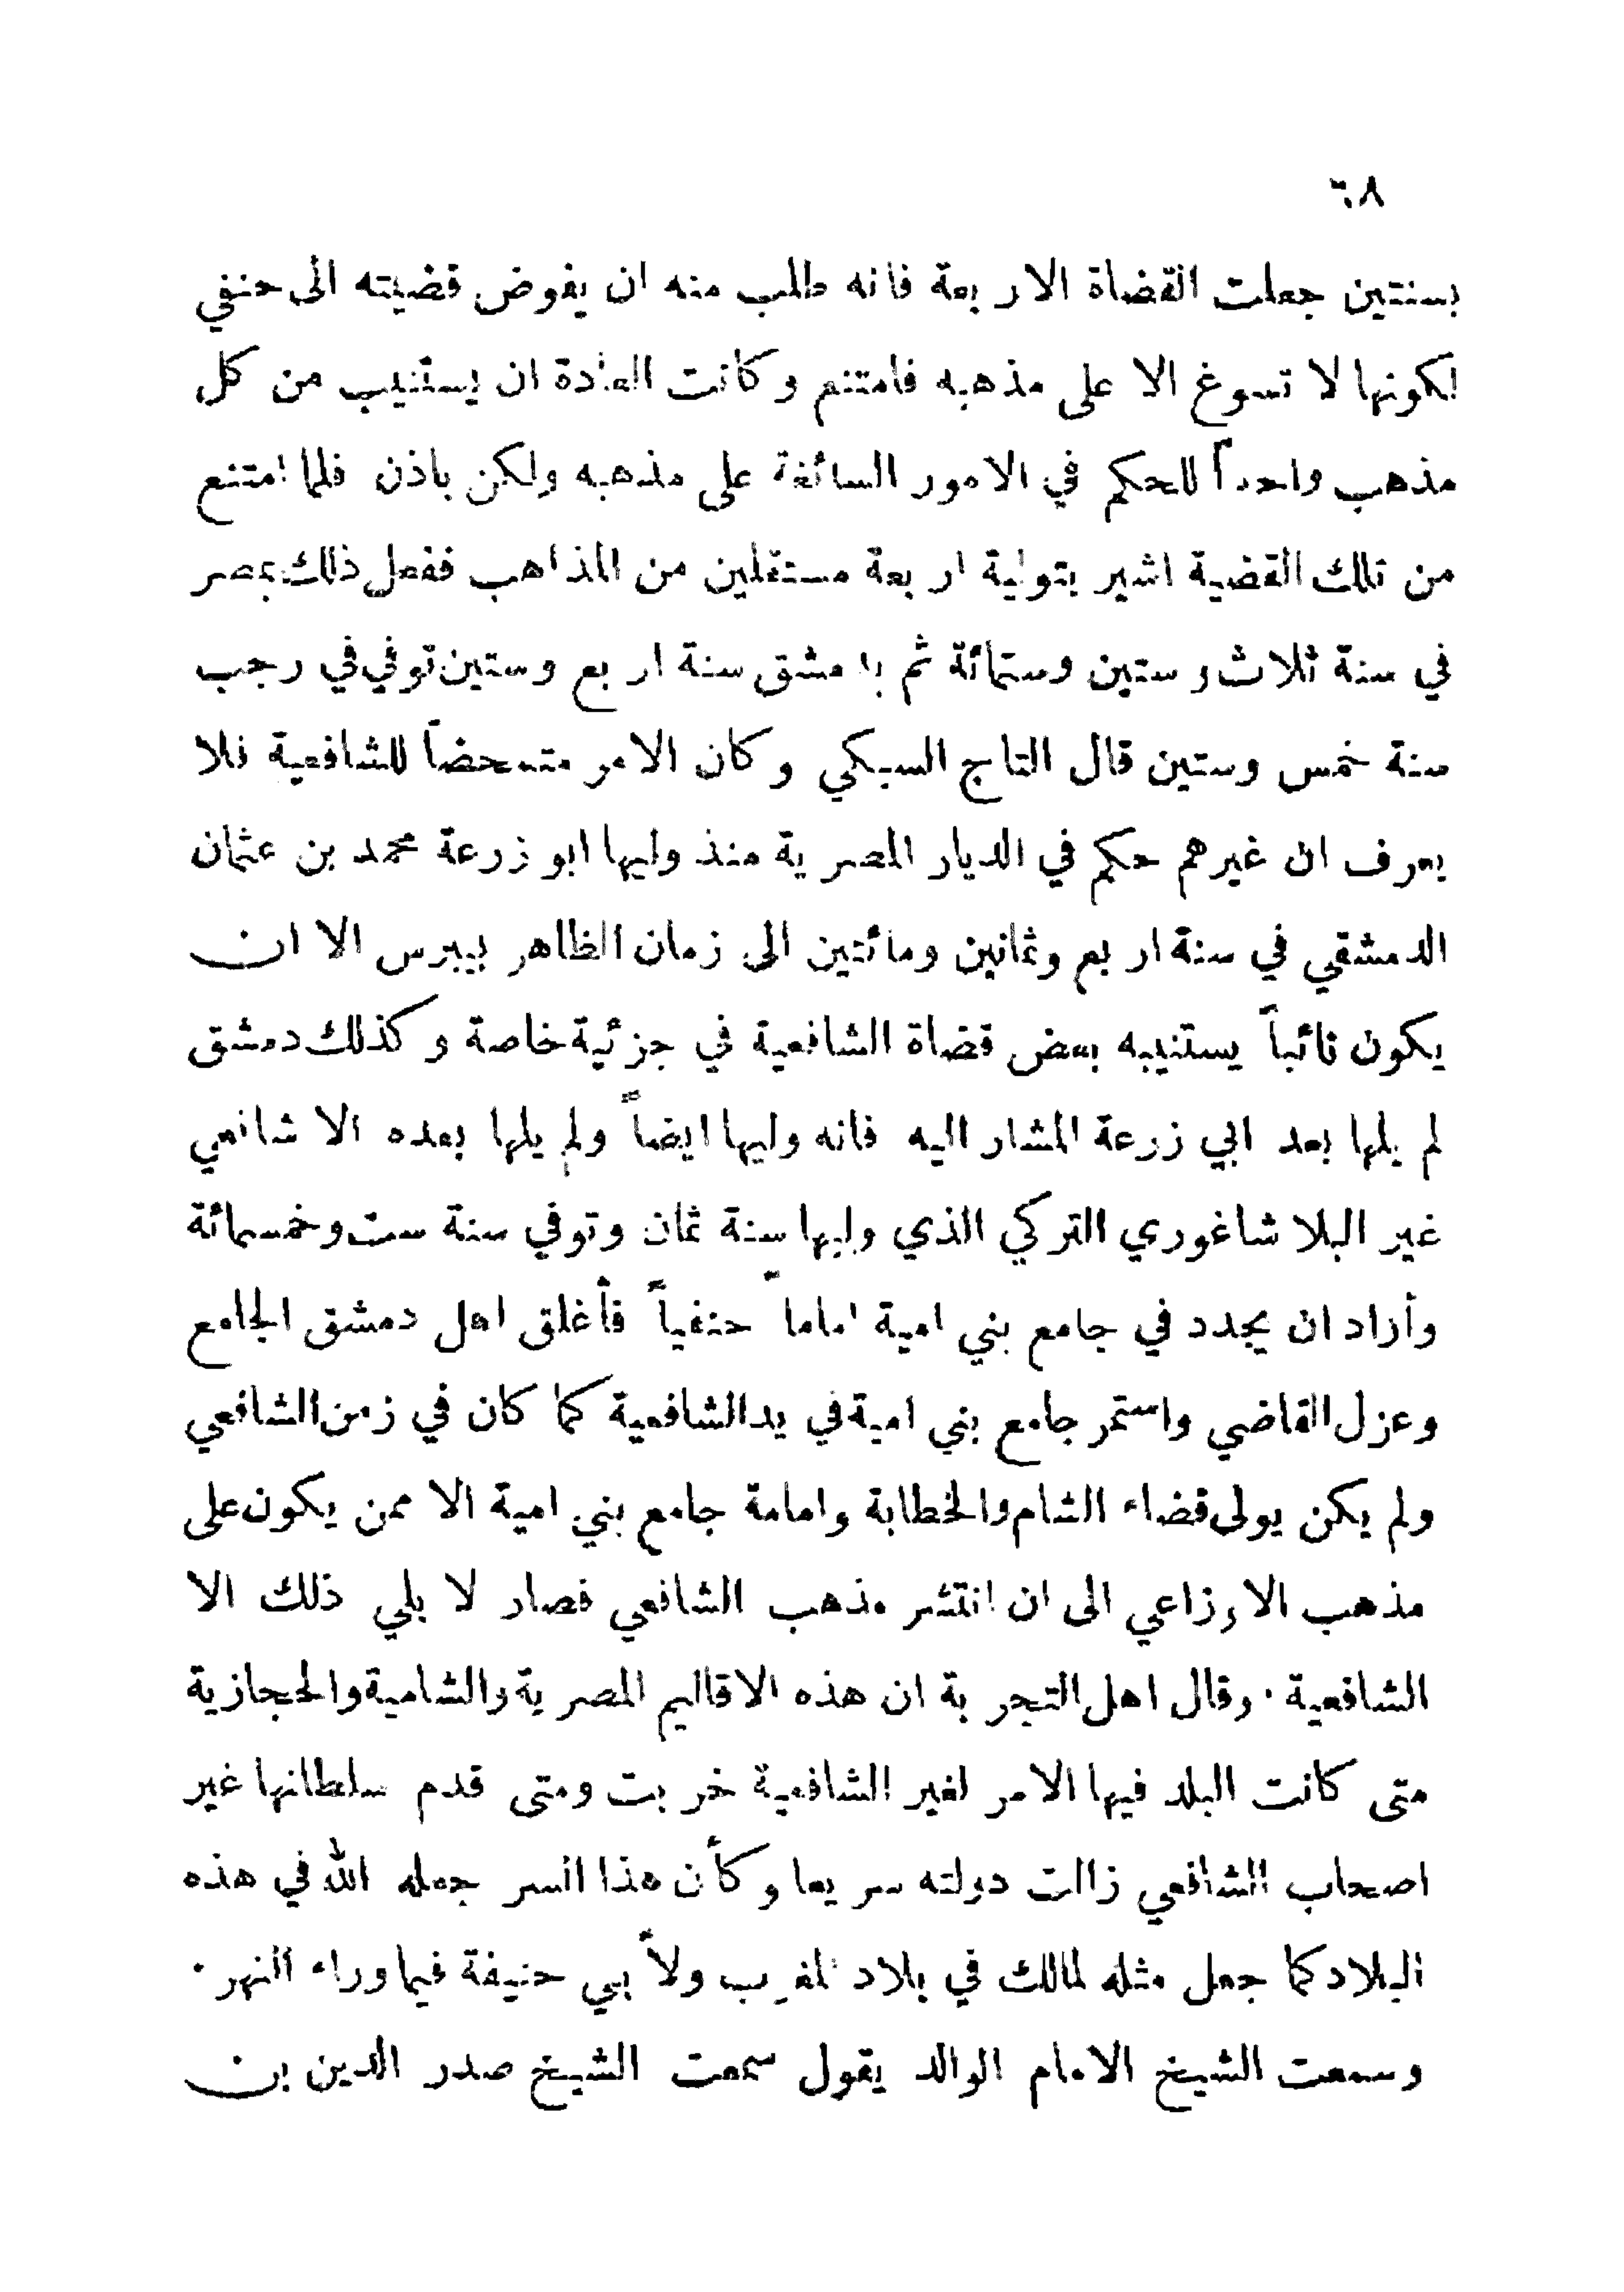 ٦٨
بسنتين جعلت القضاة الاربعة فانه طلب منه ان يفوض قضيته الى حنفي
لكونها لا تسوغ الا على مذهبه فامتنع وكانت العادة ان يستنيب من كل
مذهب واحداً للحكم في الامور السائغة على مذهبه ولكن باذن فلما امتنع
من تلك القضية اشير بتولية اربعة مستقلين من المذاهب ففعل ذلك بمصر
في سنة ثلاث وستين وستمائة ثم بدمشق سنة اربع وستين توفي في رجب
سنة خمس وستين قال التاج السبكي وكان الامر متمحضاً للشافعية فلا
يعرف ان غيرهم حكم في الديار المصرية منذ وليها ابو زرعة محمد بن عثمان
الدمشقي في سنة اربع وثمانين ومائتين الى زمان الظاهر بيبرس الا ان
يكون نائباً يستنيبه بعض قضاة الشافعية في جزئية خاصة وكذلك دمشق
لم يلها بعد ابي زرعة المشار اليه فانه وليها ايضاً ولم يلها بعده الا شافعي
غير البلا شاغوري التركي الذي وليها سنة ثمان وتوفي سنة ست وخمسمائة
وأراد ان يجدد في جامع بني امية اماماً حنفياً فأغلق اهل دمشق الجامع
وعزل القاضي واستمر جامع بني امية في يد الشافعية كما كان في زمن الشافعي
ولم يكن يولى قضاء الشام والخطابة وامامة جامع بني امية الا ممن يكون على
مذهب الاوزاعي الى ان انتشر مذهب الشافعي فصار لا يلي ذلك الا
الشافعية · وقال اهل التجربة ان هذه الاقاليم المصرية والشامية والحجازية
متى كانت البلد فيها الامر لغير الشافعية خربت ومتى قدم سلطانها غير
اصحاب الشافعي زالت دولته سريعا وكأن هذا السر جعله الله في هذه
البلاد كما جعل مثله لمالك في بلاد المغرب ولأبي حنيفة فيما وراء النهر ·
وسمعت الشيخ الامام الوالد يقول سمعت الشيخ صدر الدين بن